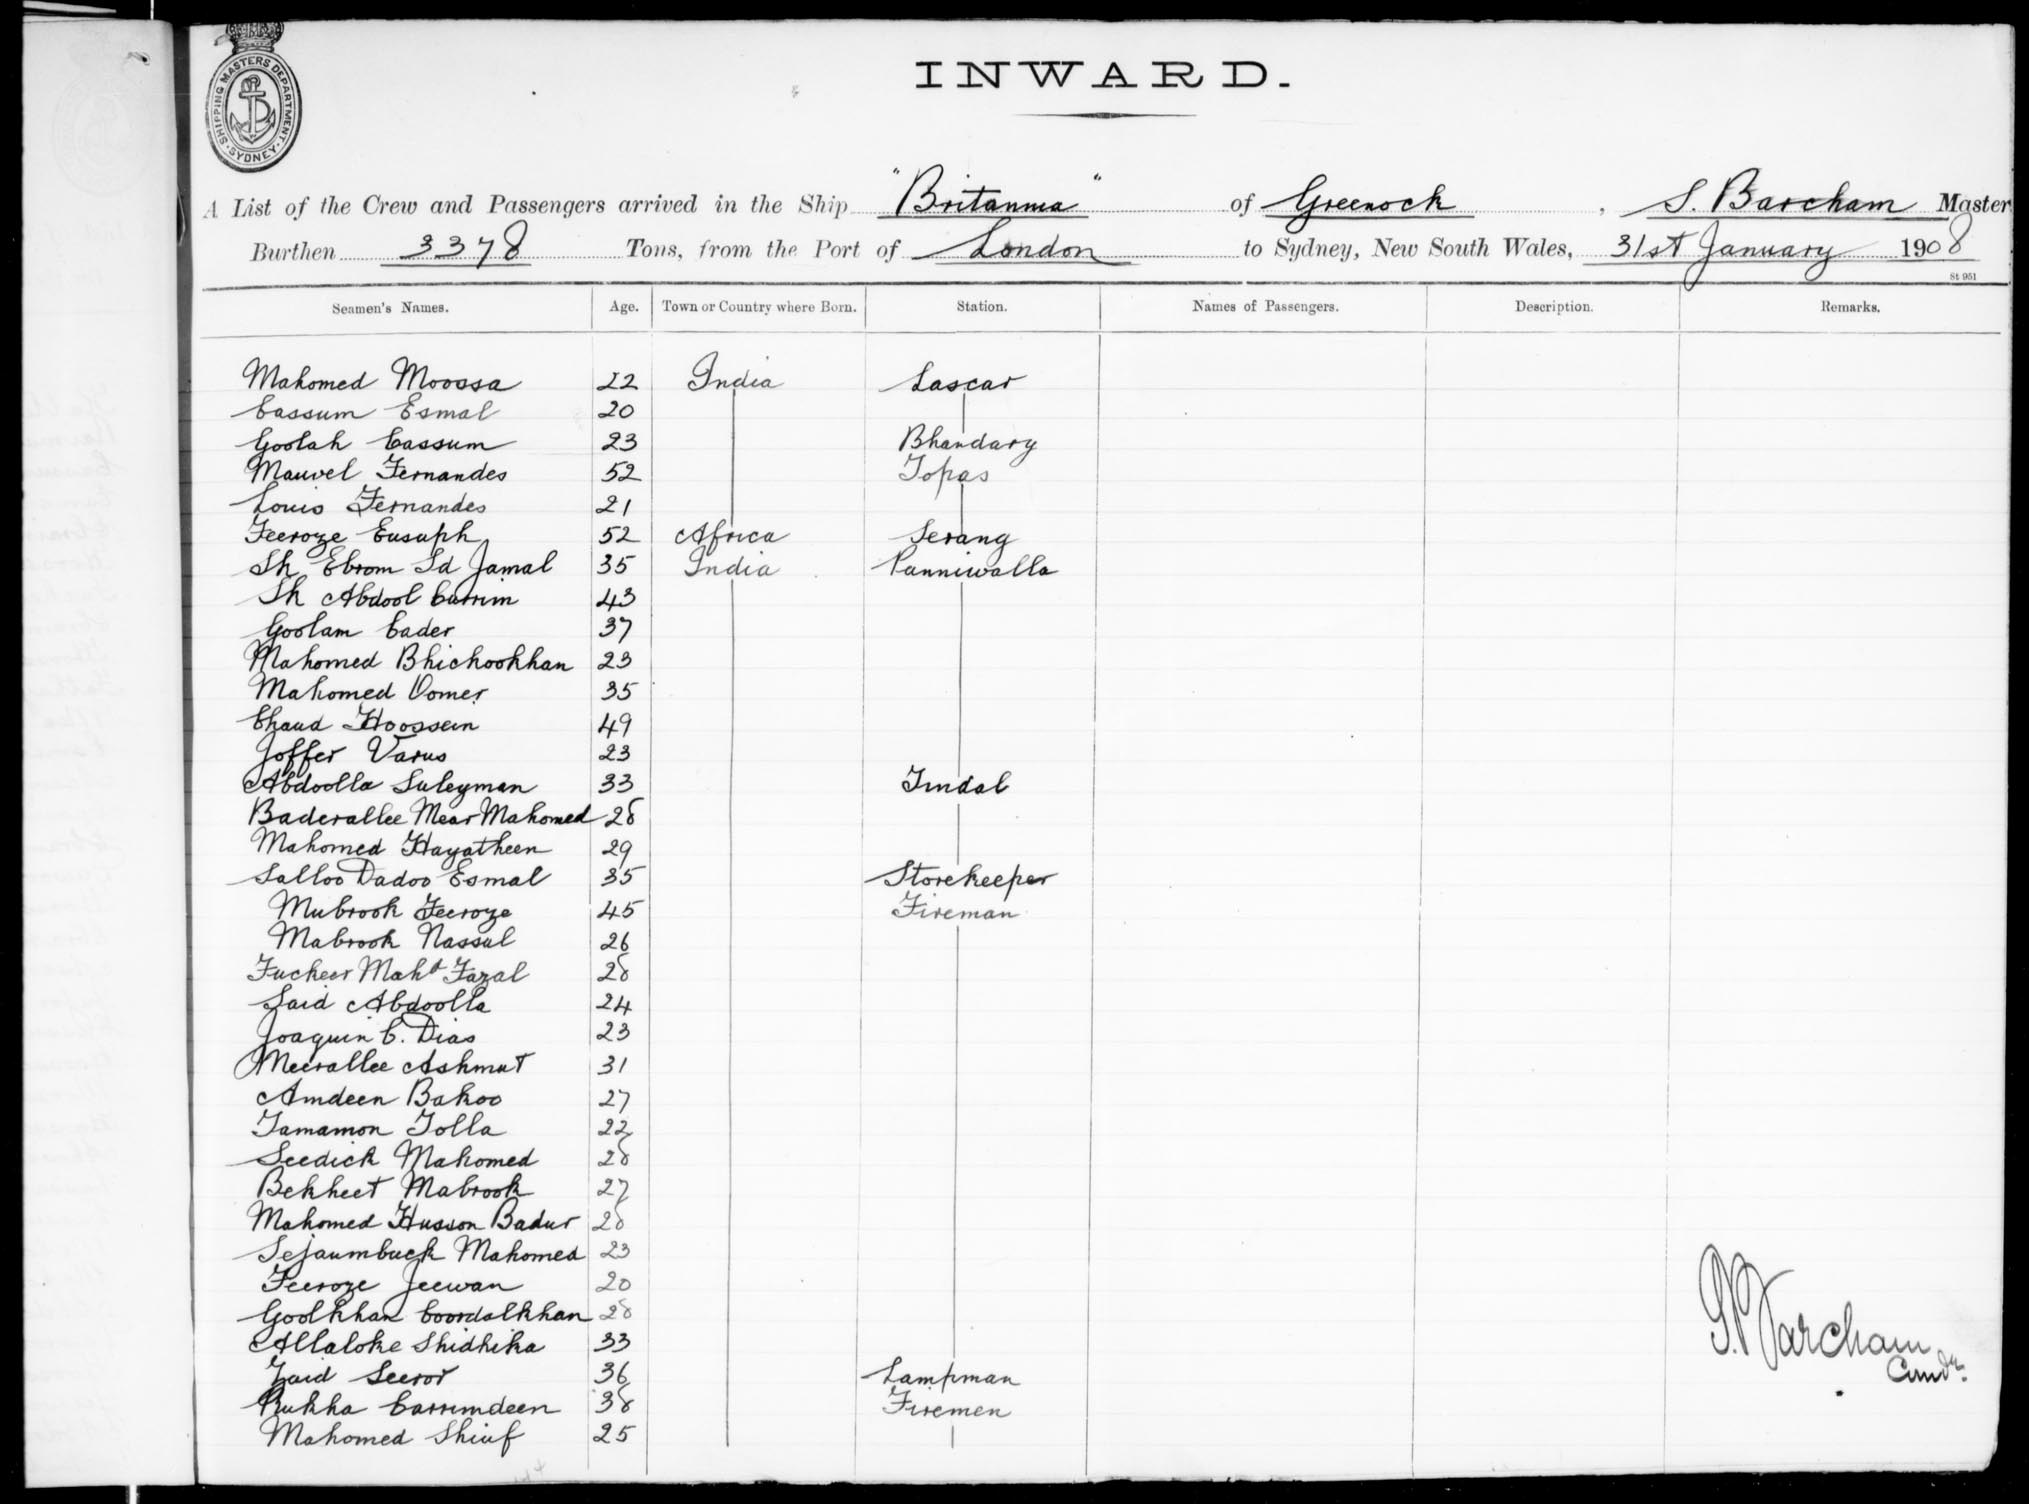 SHIPPING MASTERS DEPARTMENT. SYDNEY.
INWARD.
A List of the Crew and Passengers arrived in the Ship "Britannia" of Greenock, S. Barcham Master
Burthen 3378 Tons, from the Port of London to Sydney, New South Wales, 31st January 1908
St 951
Seamen's Names. Age. Town or Country where Born. Station. Names of Passengers. Description. Remarks.
Mahomed Moossa 22 India Lascar
Cassum Esmal 20
Goolah Cassum 23 Bhandary
Mauvel Fernandes 52 Topas
Louis Fernandes 21
Feeroze Eusuph 52 Africa Serang
Sh Ebrom Sd Jamal 35 India Punniwalla
Sh Abdool Currim 43
Goolam Cader 37
Mahomed Bhichookhan 23
Mahomed Oomer 35
Chaud Hoossein 49
Joffer Varus 23
Abdoolla Suleyman 33 Tindal
Baderallee Mear Mahomed 28
Mahomed Hayatheen 29
Salloo Dadoo Esmal 35 Storekeeper
Mubrook Feeroze 45 Fireman
Mabrook Nassul 26
Fucheer Mahd Fazal 28
Said Abdoolla 24
Joaquin C. Dias 23
Meerallee Ashmut 31
Amdeen Bakoo 27
Tamamon Tolla 22
Seedick Mahomed 28
Bekheet Mabrook 27
Mahomed Husson Badur 28
Sejaumbuck Mahomed 23
Feeroze Jeewan 20
Goolkhan Coordalkhan 28
Allaloke Shidhika 33
Zaid Seeror 36 Lampman
Rukha Carrimdeen 38 Firemen
Mahomed Shiuf 25
S. Barcham
Comdr.